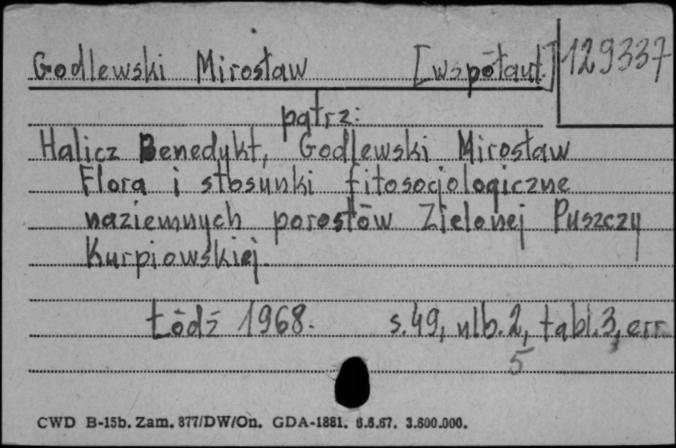 Godlewski Mirosław [współaut.] 129337
patrz:
Halicz Benedykt, Godlewski Mirosław
Flora i stosunki fitosocjologiczne
naziemnych porostów Zielonej Puszczy
Kurpiowskiej.
Łódź 1968. s.49, nlb.2, tabl.3, err
5
CWD B-15b. Zam. 877/DW/On. GDA-1881. 6.6.67. 3.600.000.